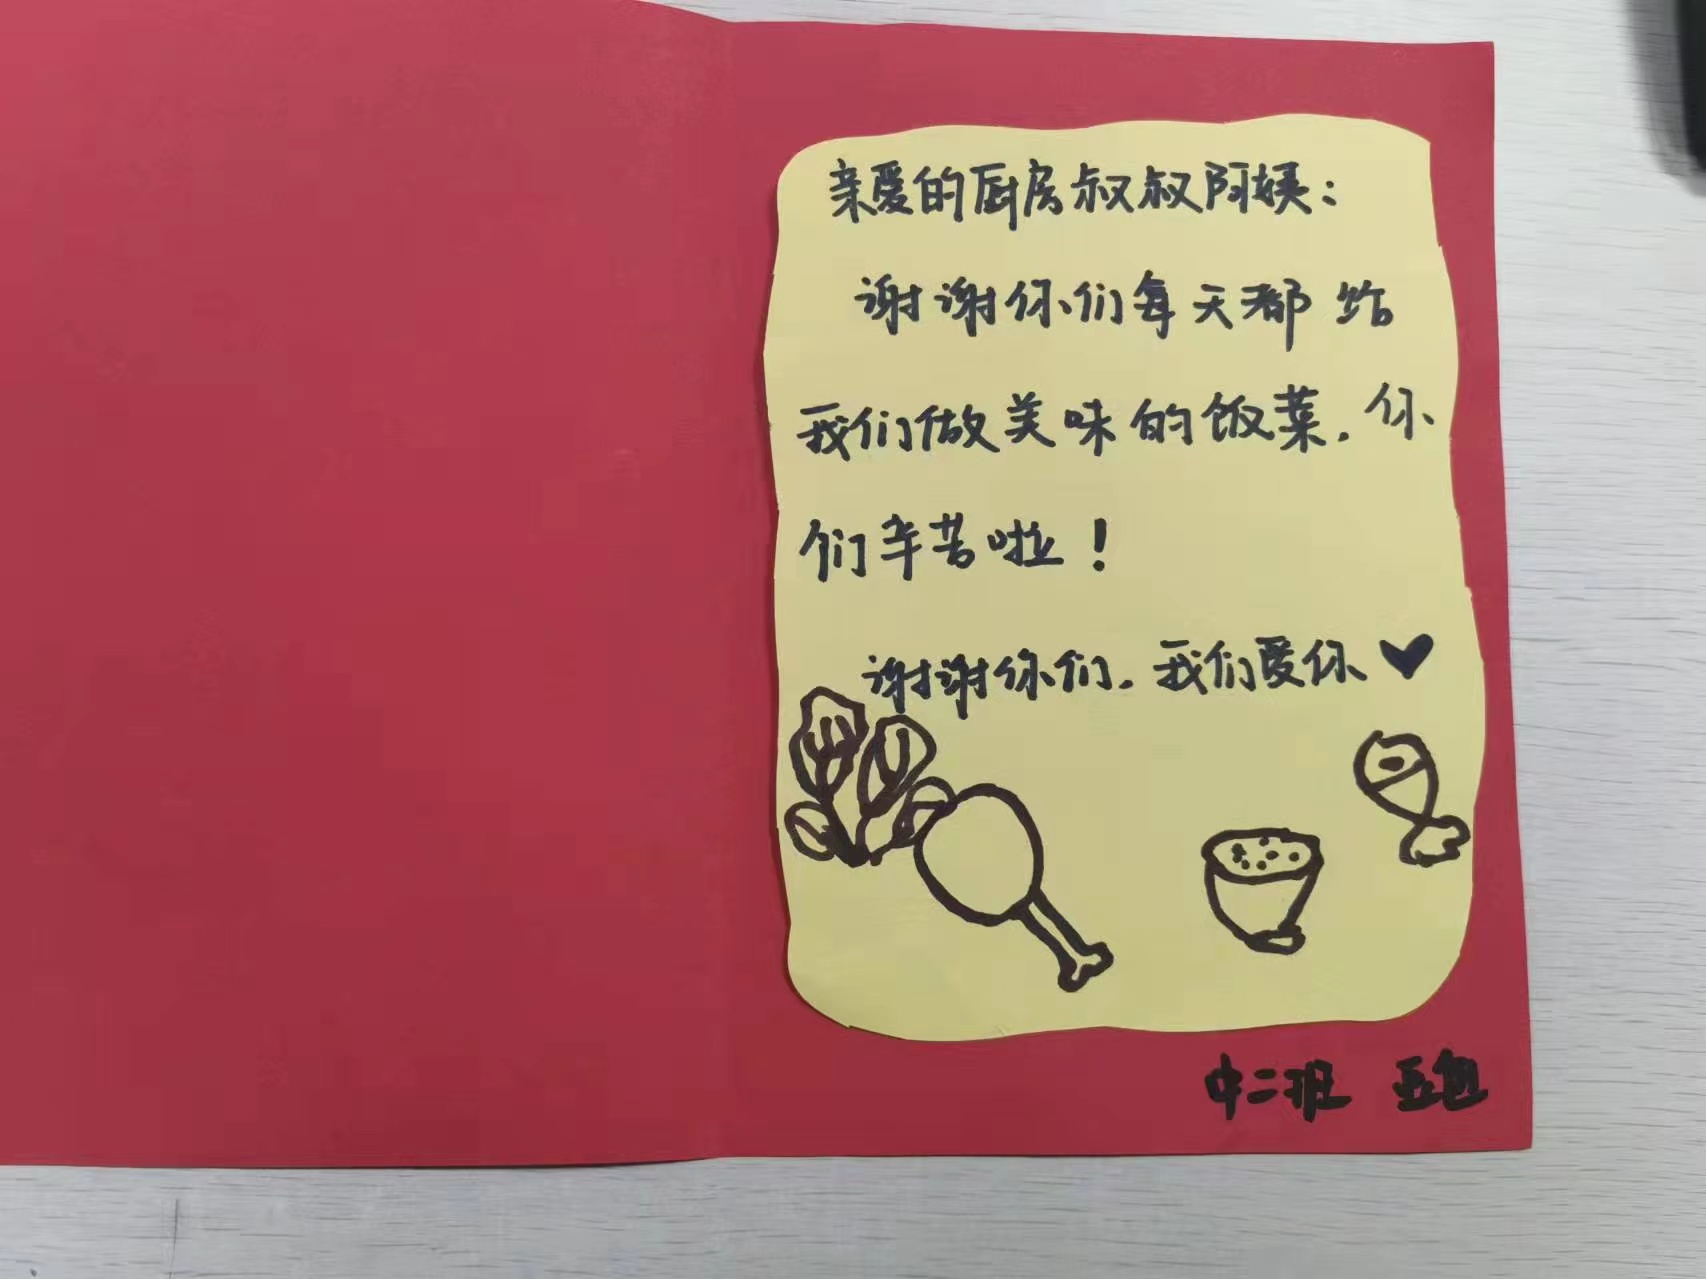 亲爱的厨房叔叔阿姨：
谢谢你们每天都给
我们做美味的饭菜，你
们辛苦啦！
谢谢你们，我们爱你
中二班